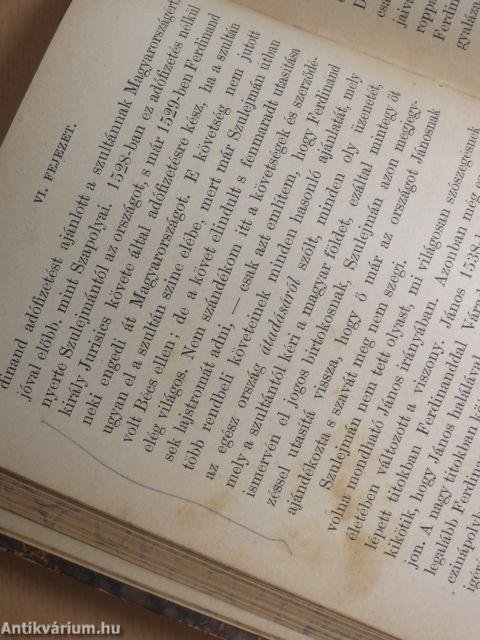 VI. FEJEZET.
dinand adófizetést ajánlott a szultánnak Magyarországért,
jóval előbb, mint Szapolyai. 1528-ban ez adófizetés nélkül
nyerte Szulejmántól az országot, s már 1529-ben Ferdinand
király Jurisics követe által adófizetésre kész, ha a szultán
neki engedi át Magyarországot. E követség nem jutott
ugyan el a szultán színe elébe, mert már Szulejmán útban
volt Bécs ellen; de a követ elindult s fenmaradt utasítása
elég világos. Nem szándékom itt a követségek és szerződé-
sek lajstromát adni, — csak azt említem, hogy Ferdinand
több rendbeli követeinek minden hasonló ajánlatát, mely
az egész ország átadásáról szólt, minden oly üzenetét,
mely a szultántól kéri a magyar földet, ezáltal mintegy őt
ismervén el jogos birtokosnak, Szulejmán azon megjegy-
zéssel utasítá vissza, hogy ő már az országot Jánosnak
ajándékozta s szavát meg nem szegi.
Szulejmán nem tett olyast, mi világosan szószegésnek
volna mondható János irányában. Azonban még ez
életében változott a viszony. János 1538-
lépett titokban Ferdinanddal Vára
kikötik, hogy János halálával
jon. A nagy titokban
legalább Ferdina
czinápolyb
igér
roppa
Ferdinand
gyaláz
jaiva
Antikvárium.hu